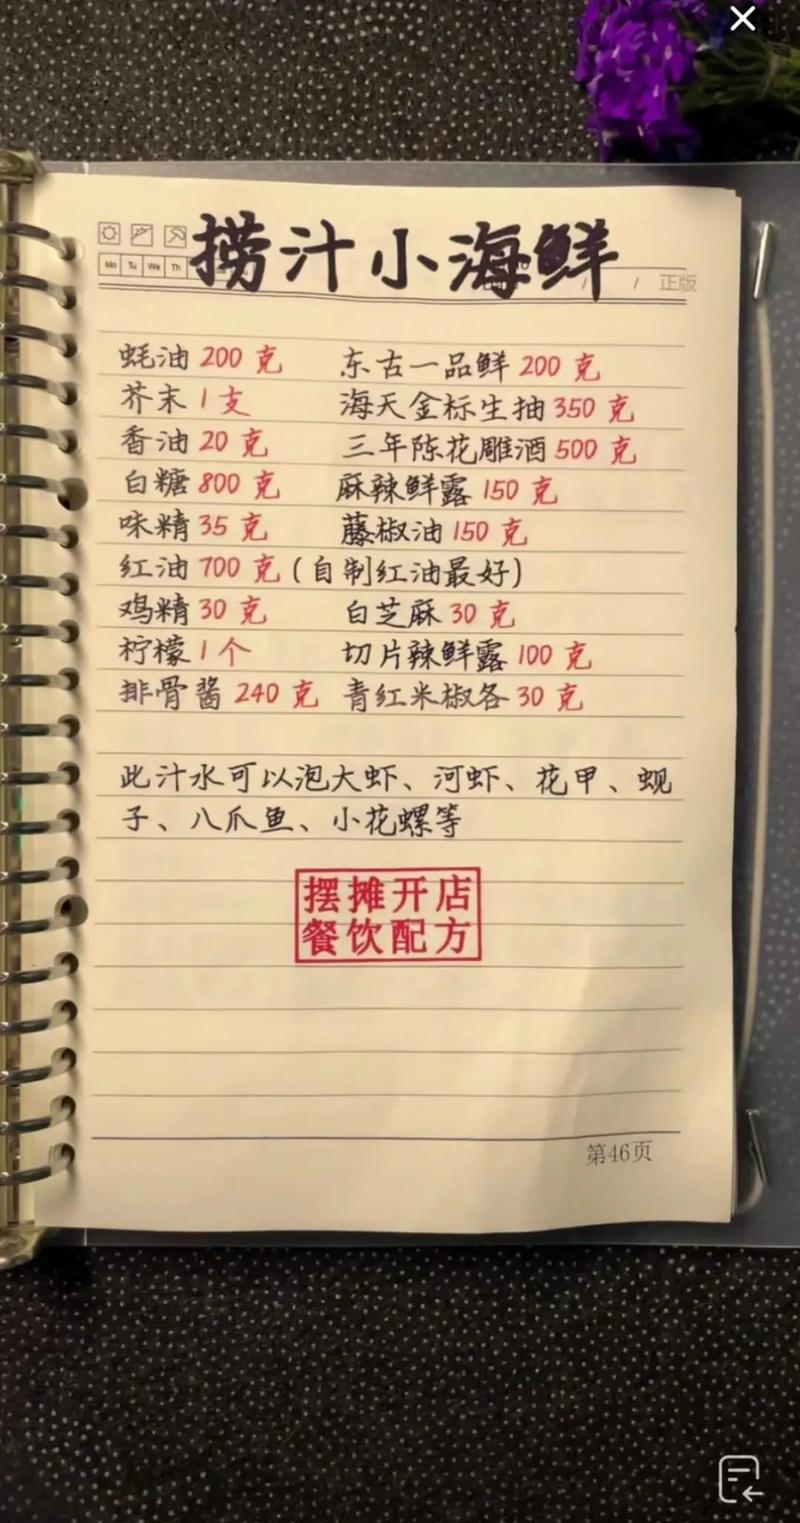 捞汁小海鲜
Mo Tu We Th
正版
蚝油 200 克 东古一品鲜 200 克
芥末 1 支 海天金标生抽 350 克
香油 20 克 三年陈花雕酒 500 克
白糖 800 克 麻辣鲜露 150 克
味精 35 克 藤椒油 150 克
红油 700 克 (自制红油最好)
鸡精 30 克 白芝麻 30 克
柠檬 1 个 切片辣鲜露 100 克
排骨酱 240 克 青红米椒各 30 克
此汁水可以泡大虾、河虾、花甲、蚬
子、八爪鱼、小花螺等
摆摊开店
餐饮配方
第46页